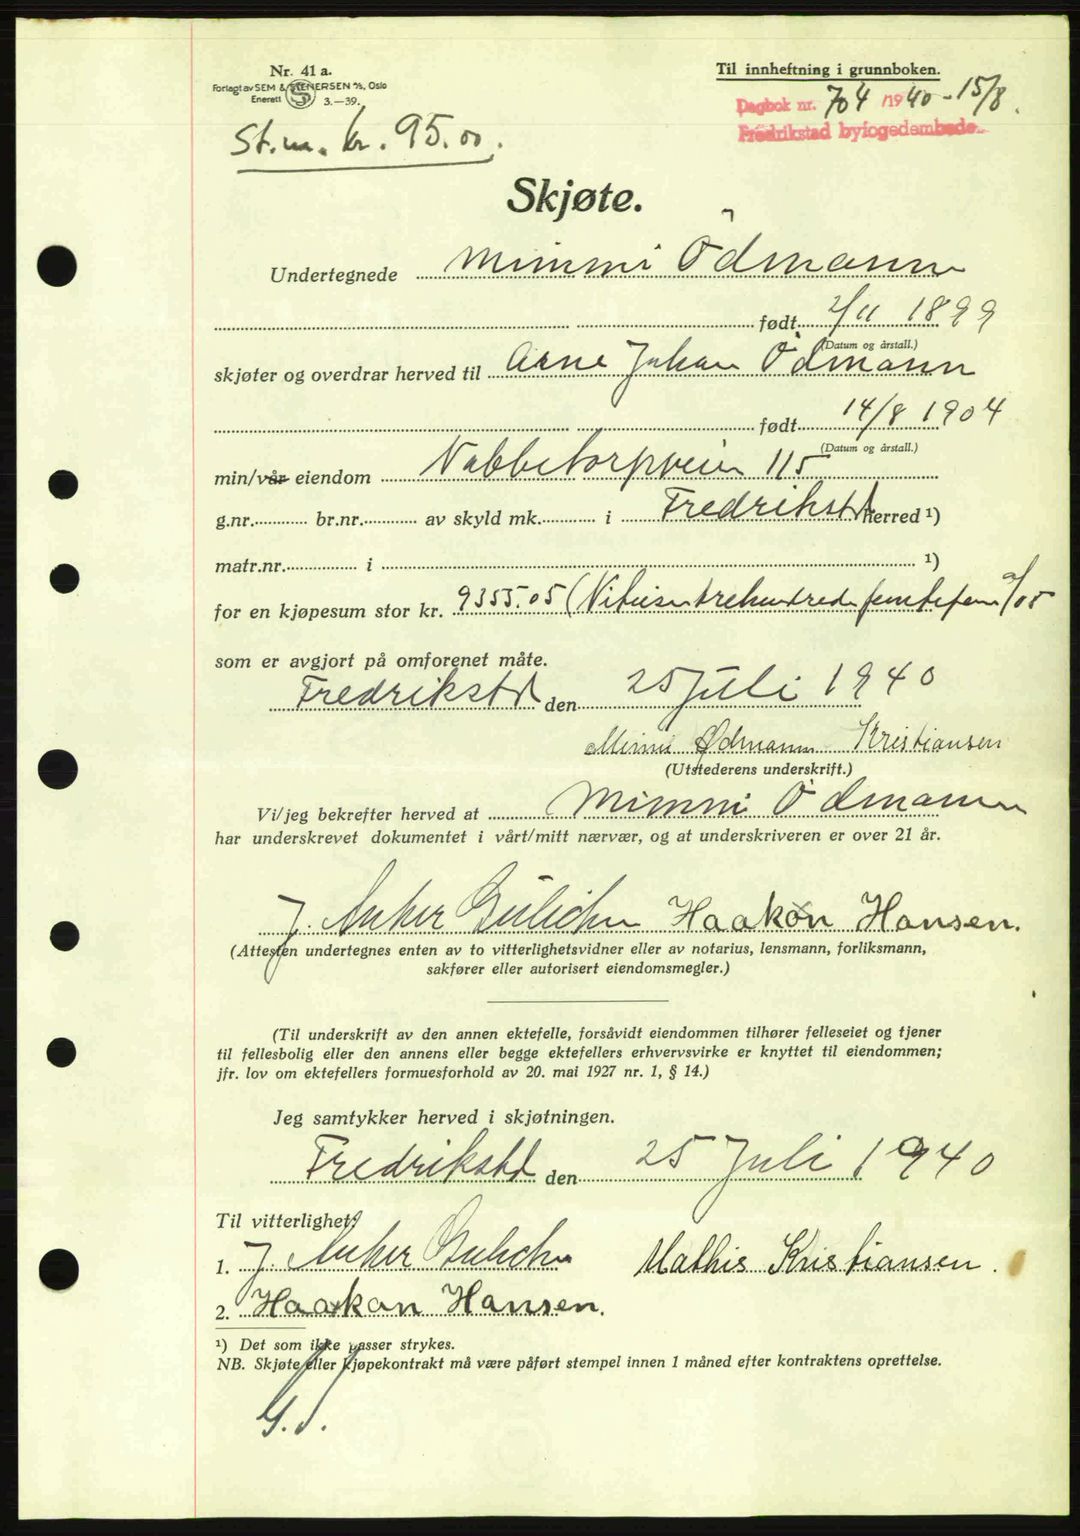 Nr. 41 a.
Forlagt av SEM & STENERSEN A/S, Oslo
Enerett 3.—39.
Til innheftning i grunnboken.
Dagbok nr. 704 /1940 - 15/8.
Fredrikstad byfogedembede
St.m. kr. 95.00.
Skjøte.
Undertegnede Mimmi Ödmann
født 2/11 1899
(Datum og årstall.)
skjøter og overdrar herved til Arne Johan Ödmann
født 14/8 1904
(Datum og årstall.)
min/vår eiendom Nabbetorpveien 115
g.nr. br.nr. av skyld mk. i Fredrikstd herred ¹)
matr.nr. i ¹)
for en kjøpesum stor kr. 9355.05 (Nitusentrehundrede femtifem /05
som er avgjort på omforenet måte.
Fredrikstd den 25 Juli 1940
Mimi Ødmann Kristiansen
(Utstederens underskrift.)
Vi/jeg bekrefter herved at Mimmi Ödmann
har underskrevet dokumentet i vårt/mitt nærvær, og at underskriveren er over 21 år.
J. Anker Gulichn Haakon Hansen.
(Attesten undertegnes enten av to vitterlighetsvidner eller av notarius, lensmann, forliksmann,
sakfører eller autorisert eiendomsmegler.)
(Til underskrift av den annen ektefelle, forsåvidt eiendommen tilhører felleseiet og tjener
til fellesbolig eller den annens eller begge ektefellers erhvervsvirke er knyttet til eiendommen;
jfr. lov om ektefellers formuesforhold av 20. mai 1927 nr. 1, § 14.)
Jeg samtykker herved i skjøtningen.
Fredrikstd den 25 Juli 1940
Til vitterlighet:
1. J. Anker Gulichn Mathis Kristiansen.
2. Haakon Hansen.
¹) Det som ikke passer strykes.
NB. Skjøte eller kjøpekontrakt må være påført stempel innen 1 måned efter kontraktens oprettelse.
G.J.